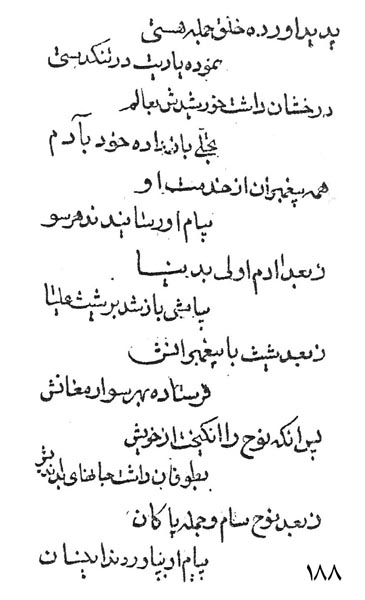 پدید اورده خلق جمله هستی
نموده یاریت در تنگدستی
درخشان داشت خورشیدش بعالم
تجلی باز داده خود بآدم
همه پیغمبران از خدمت او
پیام اورسانیدند هر سو
ز بعد ادم اولی بدینا
پیامش باز شد بر شیث علیتا
ز بعد شیث با پیغمبرانش
فرستاده بهر سو ارمغانش
پس انکه نوح را انکیخت از خویش
بطوفان داشت جانهای
ز بعد نوح سام و جمله پاکان
پیام او بیاوردند اینسان
۱۸۸